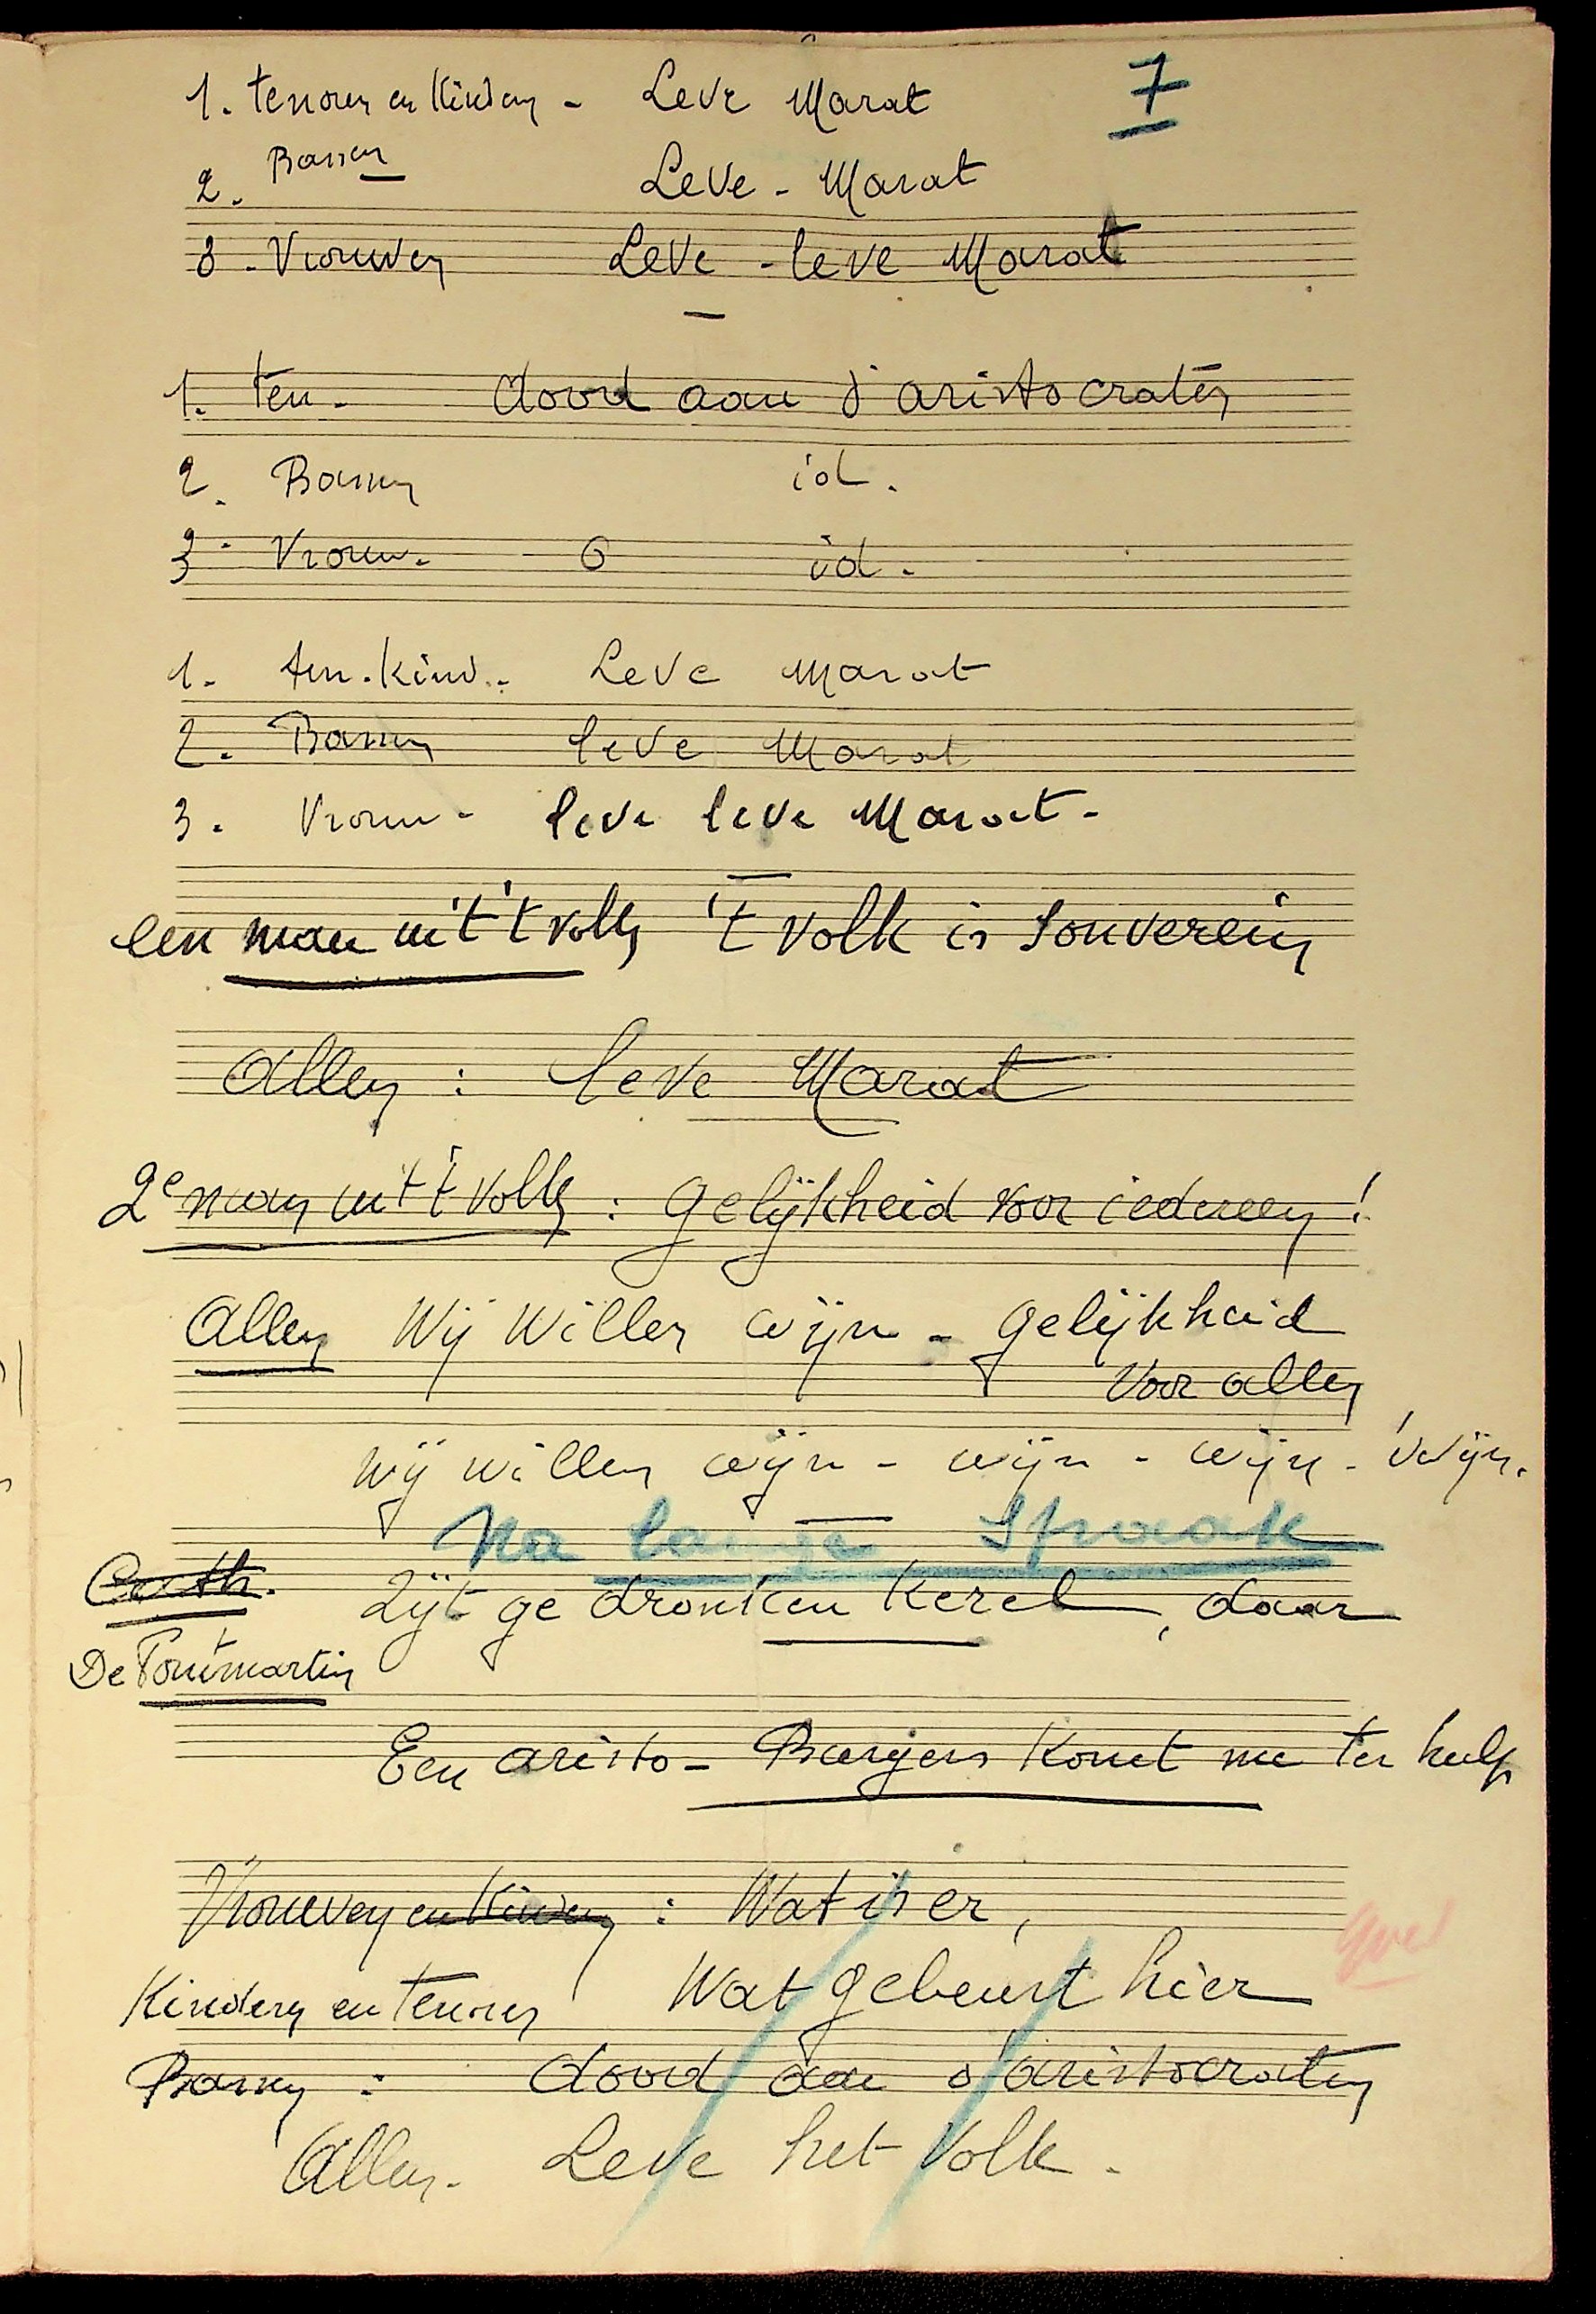 7
1. tenoren en Kinderen - Leve Marat
2. Bassen Leve - Marat
3 - Vrouwen Leve - leve Marat
1. ten - dood aan d'aristocraten
2. Bassen id.
3 - Vrouw. O id.
1. ten. kind. - Leve Marat
2. Bassen leve Marat
3. Vrouw - leve leve Marat -
een man uit 't volk 't volk is souverein
Allen : leve Marat
2e man uit 't volk : gelijkheid voor iedereen !
Allen Wij willen wijn - gelijkheid
voor allen
wij willen wijn - wijn - wijn - wijn.
Na lange Spraak
Zijt ge dronken kerel, daar
De Pontmartin
Een aristo - Burgers komt me ter hulp
Vrouwen en Kinderen : Wat is er,
Kinderen en tenoren Wat gebeurt hier
Bassen : dood aan d'aristocraten
Allen - Leve het Volk.